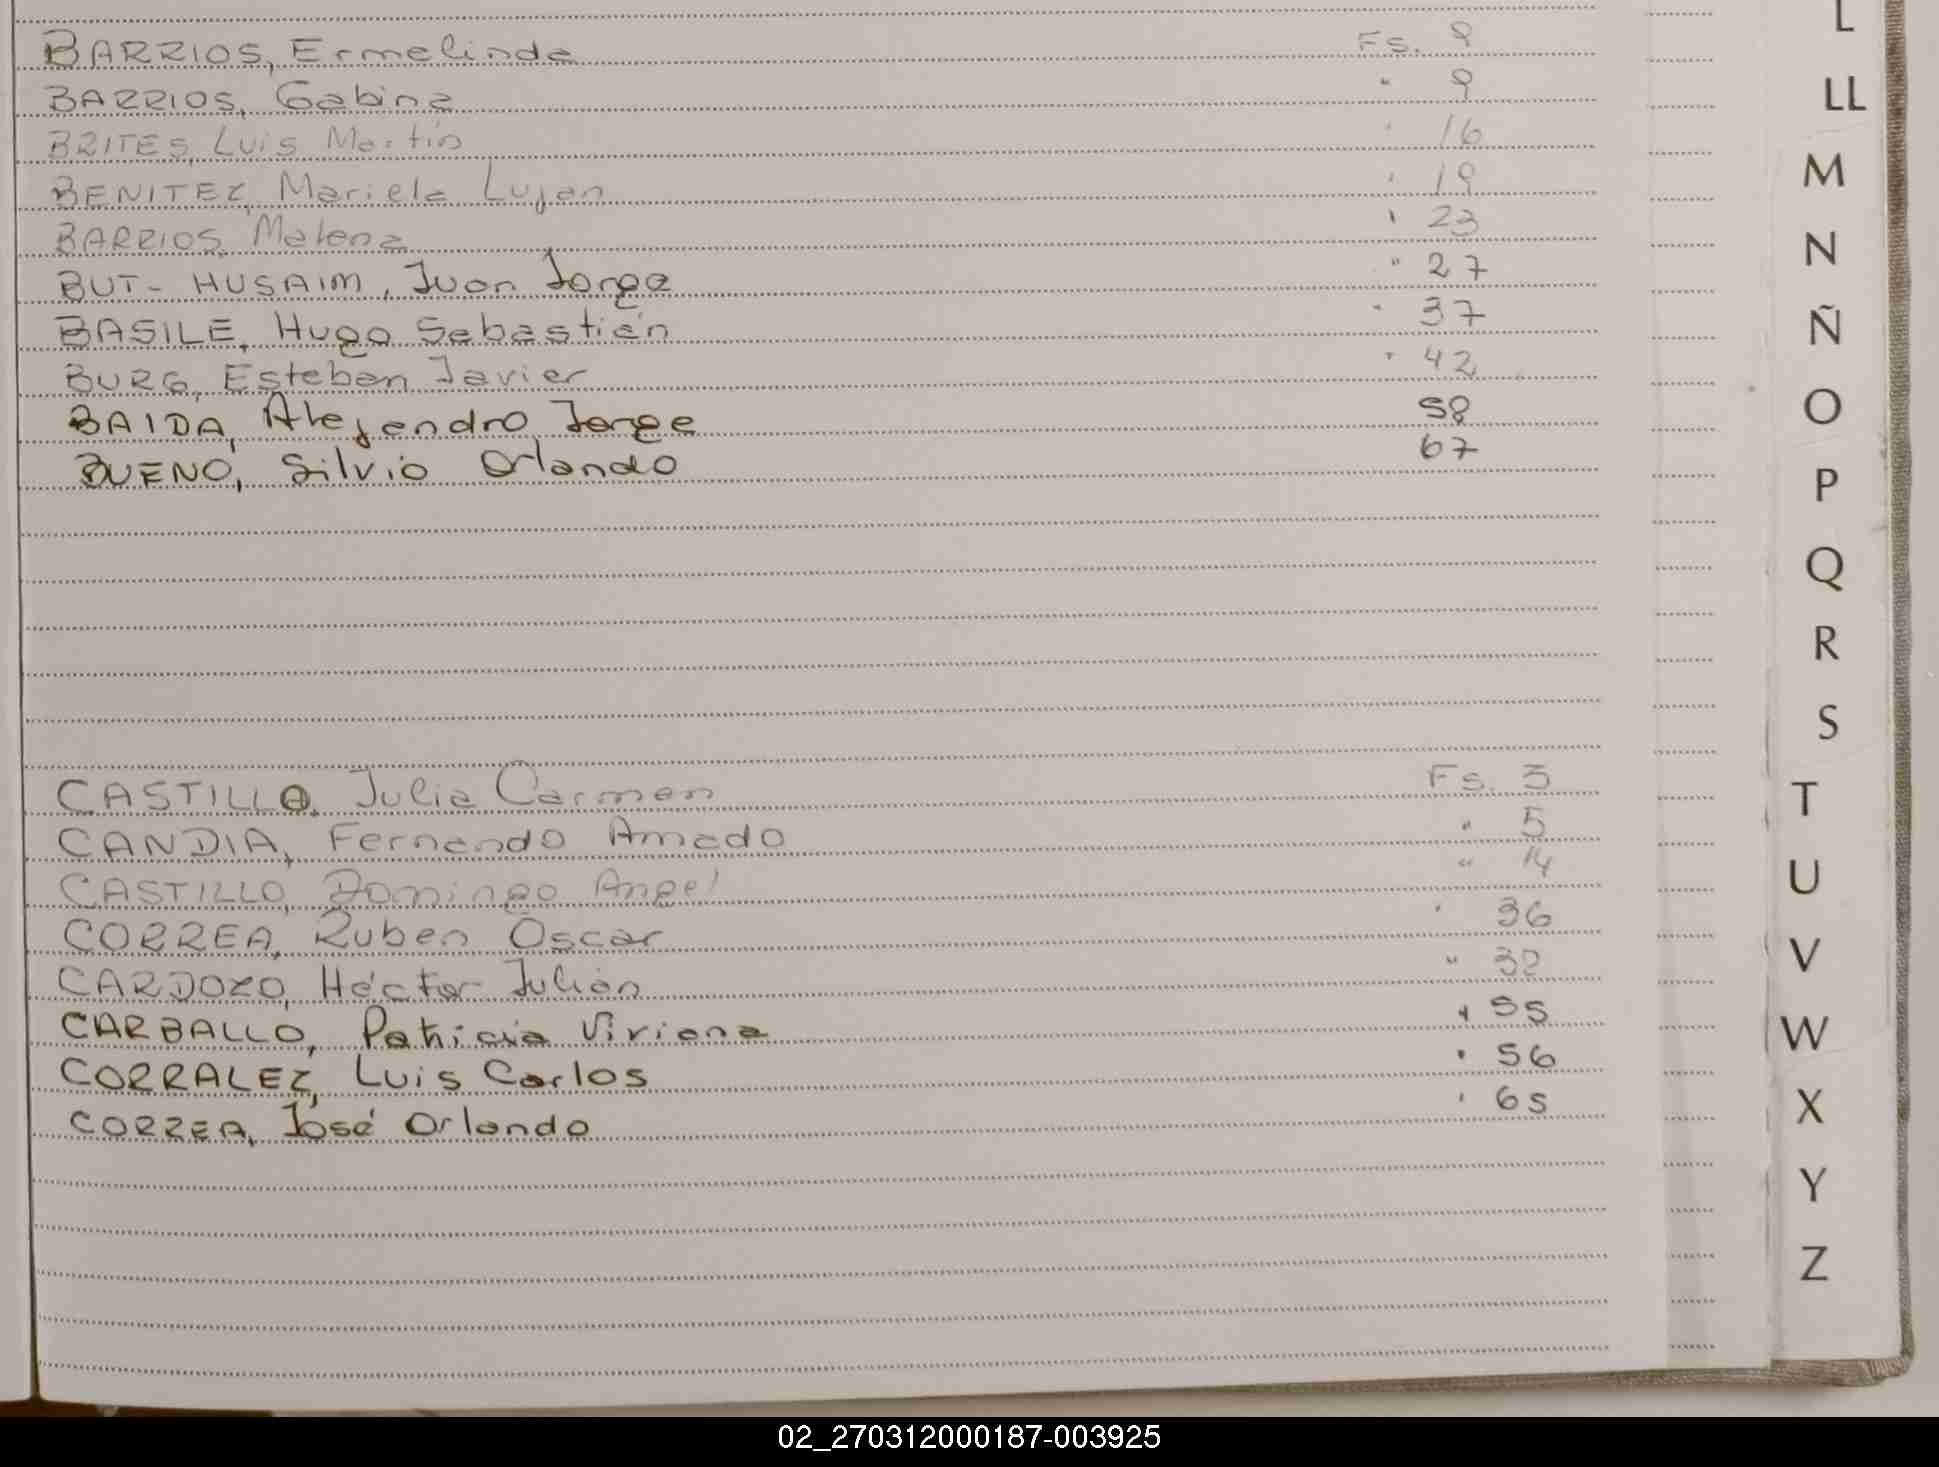 BARRIOS, Ermelinda Fs. 9
BARRIOS, Gabina " 9
BRITES, Luis Martín " 16
BENITEZ, Mariela Lujan " 19
BARRIOS, Malena " 23
BUT-HUSAIM, Juan Jorge " 27
BASILE, Hugo Sebastián " 37
BURG, Esteban Javier " 42
BAIDA, Alejandro Jorge 58
BUENO, Silvio Orlando 67
CASTILLO, Julia Carmen Fs. 3
CANDIA, Fernando Amado " 5
CASTILLO, Domingo Angel " 14
CORREA, Ruben Oscar " 36
CARDOZO, Héctor Julián "
CARBALLO, Patricia Viviana " 55
CORRALEZ, Luis Carlos " 56
CORREA, José Orlando " 65
L
LL
M
N
Ñ
O
P
Q
R
S
T
U
V
W
X
Y
Z
02_270312000187-003925